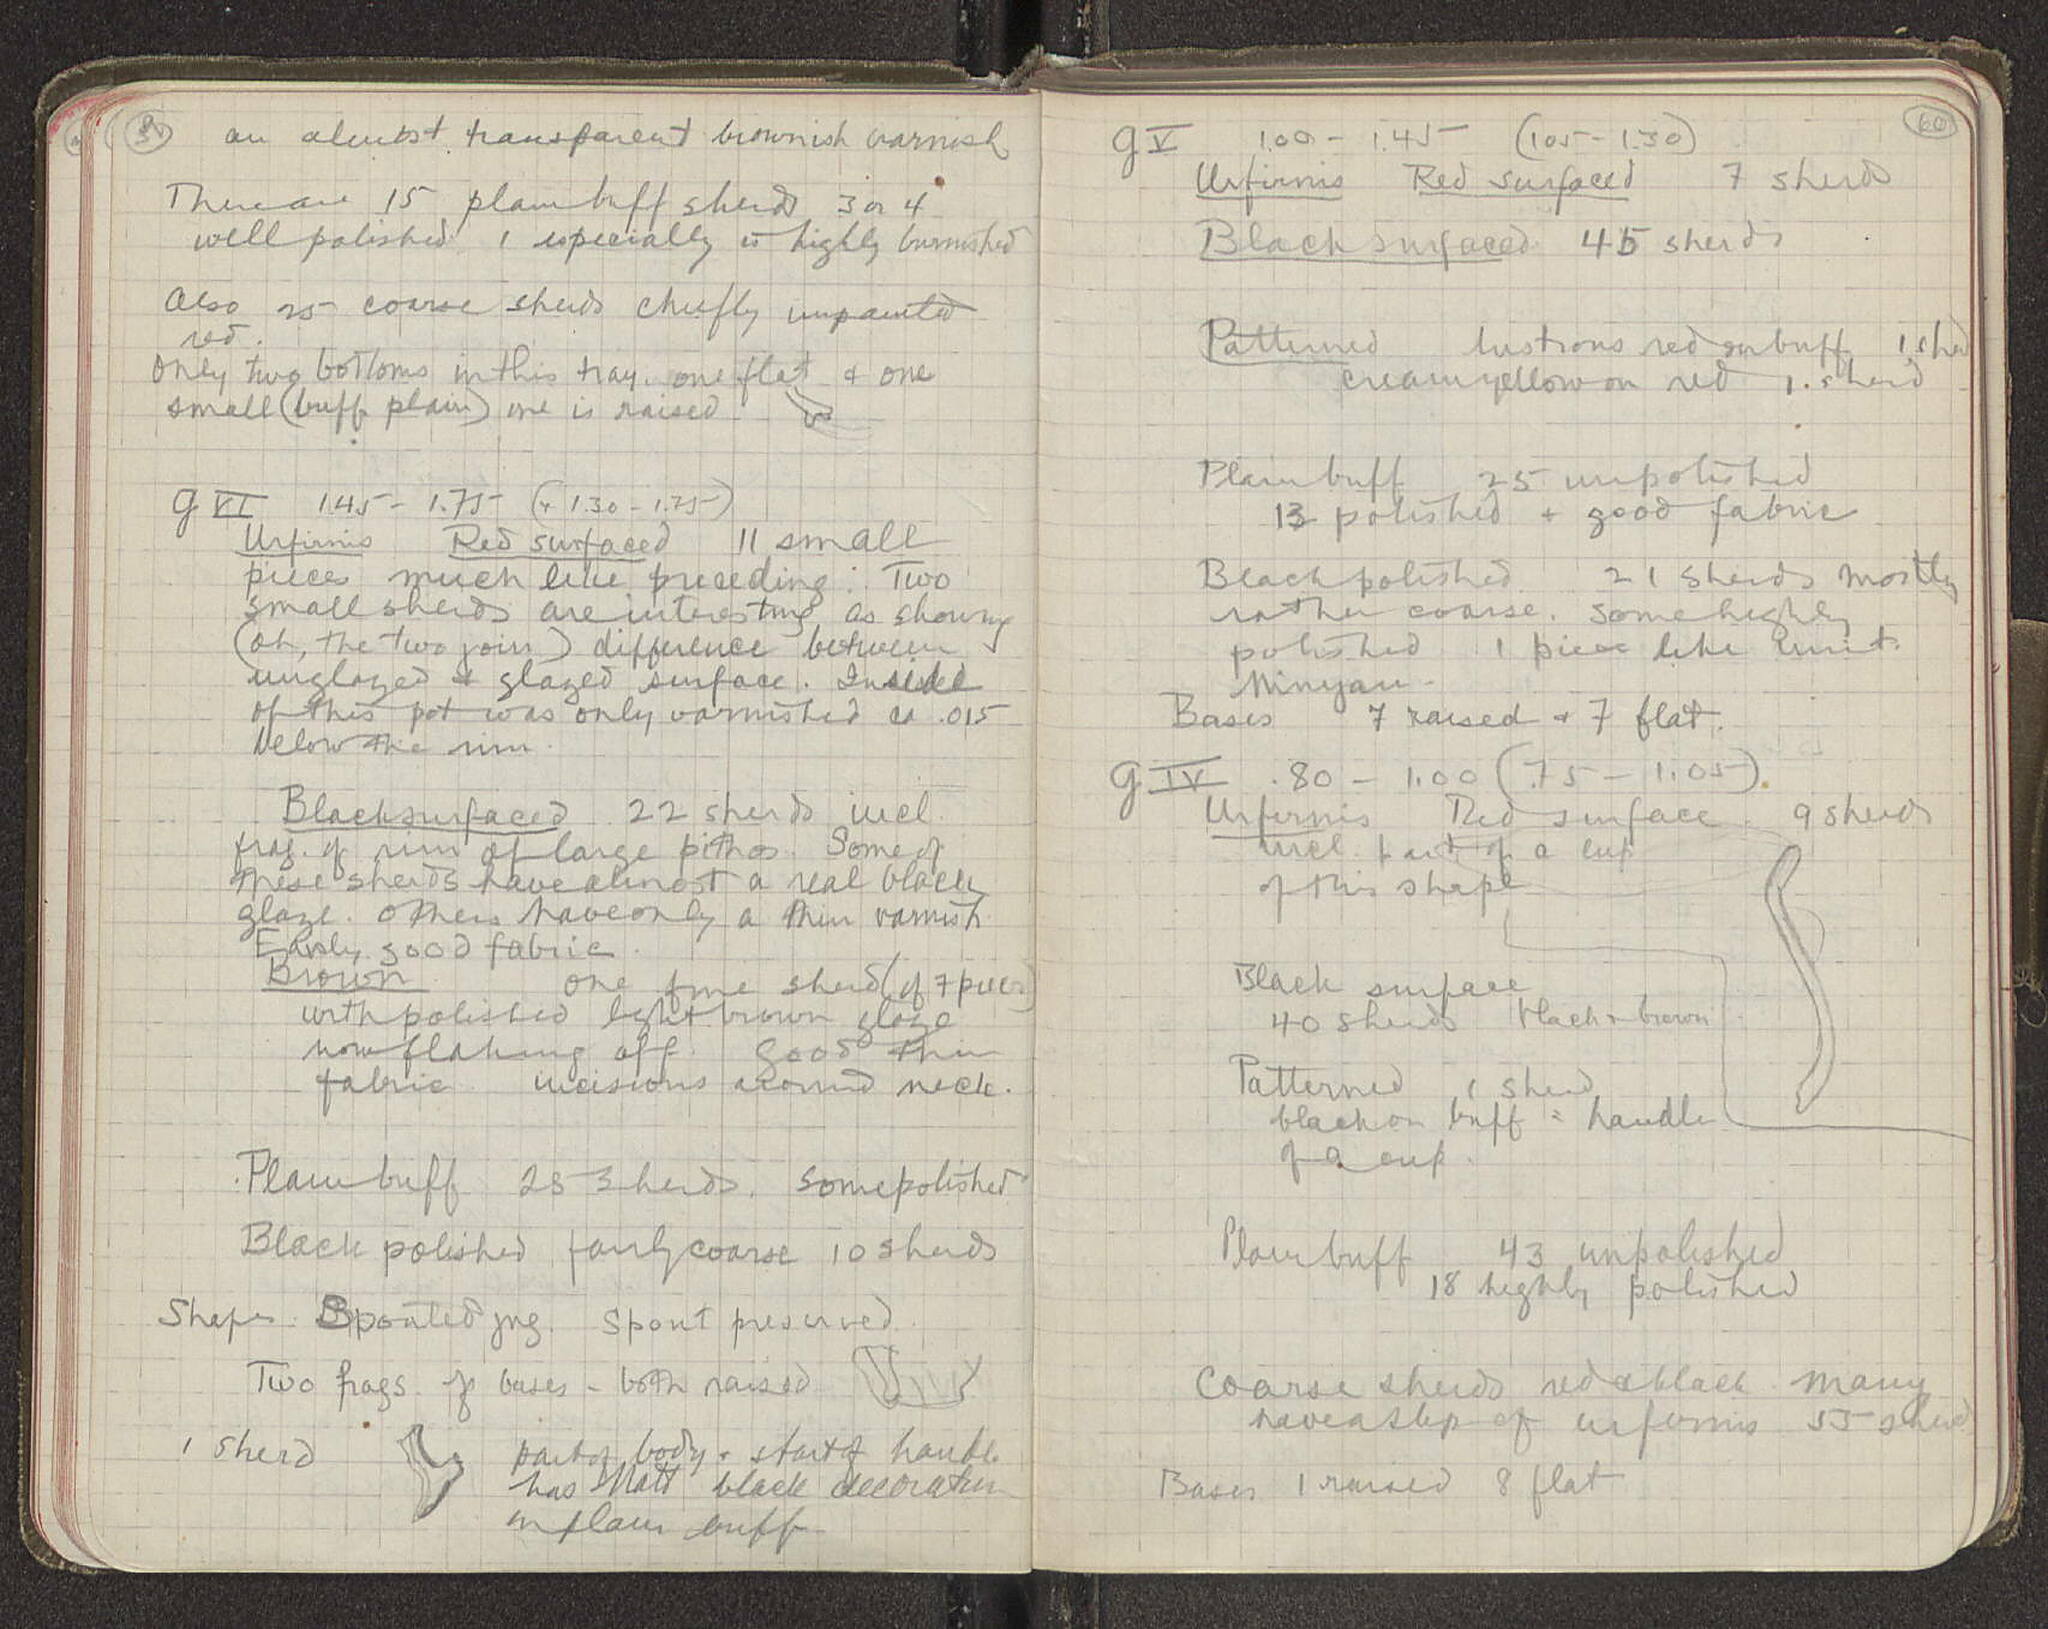 an almost transparent brownish varnish
There are 15 plain buff sherds 3 or 4
well polished 1 especially is highly burnished
Also 25 coarse sherds chiefly unpainted
red.
Only two bottoms in this tray. one flat & one
small (buff plain) one is raised
G VI 1.45 - 1.75 (& 1.30 - 1.75)
Urfirnis Red surfaced 11 small
pieces much like preceding. Two
small sherds are interesting as showing
(oh, the two join) difference between
unglazed & glazed surface. Inside
of this pot was only varnished ca .015
below the rim.
Black surfaced 22 sherds incl.
frag. of rim of large pithos. Some of
these sherds have almost a real black
glaze. Others have only a thin varnish
Fairly good fabric.
Brown one fine sherd (of 7 pieces)
with polished light brown glaze
now flaking off. Good thin
fabric incisions around neck.
Plain buff 28 sherds. Some polished
Black polished fairly coarse 10 sherds
Shapes Spouted jug. Spout preserved.
Two frags. of bases - both raised
1 sherd part of body & start of handle
has Matt black decoration
on plain buff
60
G V 1.00 - 1.45 (1.05 - 1.30)
Urfirnis Red surfaced 7 sherds
Black surfaced 45 sherds
Patterned lustrous red on buff 1 sherd
cream yellow on red 1 sherd
Plain buff 25 unpolished
13 polished & good fabric
Black polished 21 sherds mostly
rather coarse. Some highly
polished 1 piece like imit.
Minyan.
Bases 7 raised & 7 flat.
G IV .80 - 1.00 (.75 - 1.05).
Urfirnis Red surface. 9 sherds
incl. part of a cup
of this shape
Black surface
40 sherds black & brown
Patterned 1 sherd
black on buff = handle
of a cup.
Plain buff 43 unpolished
18 highly polished
Coarse sherds red & black. Many
have a slip of urfirnis 55 sherds
Bases 1 raised 8 flat